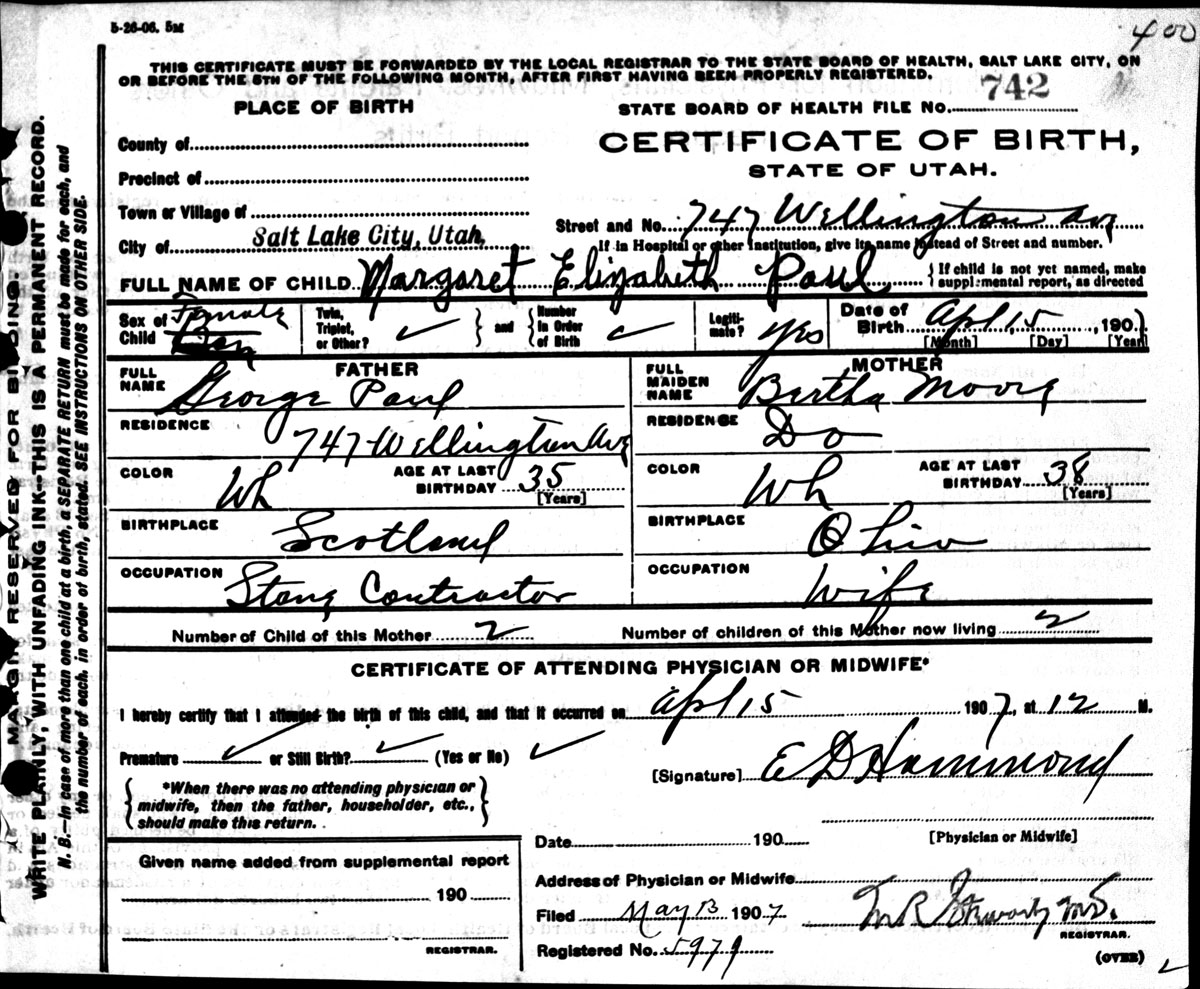 5-26-06. 5M
400
THIS CERTIFICATE MUST BE FORWARDED BY THE LOCAL REGISTRAR TO THE STATE BOARD OF HEALTH, SALT LAKE CITY, ON
OR BEFORE THE 5TH OF THE FOLLOWING MONTH, AFTER FIRST HAVING BEEN PROPERLY REGISTERED.
PLACE OF BIRTH
STATE BOARD OF HEALTH FILE NO. 742
CERTIFICATE OF BIRTH,
STATE OF UTAH.
County of
Precinct of
Town or Village of
City of Salt Lake City, Utah,
Street and No. 747 Wellington Ave
If in Hospital or other Institution, give its name instead of Street and number.
FULL NAME OF CHILD Margaret Elizabeth Paul
{ If child is not yet named, make
supplemental report, as directed
Sex of Child Female Boy
Twin, Triplet, or Other? ✓ } and { Number in Order of Birth ✓
Legitimate? yes
Date of Birth Apl 15, 1907
[Month] [Day] [Year]
FATHER
FULL NAME George Paul
RESIDENCE 747 Wellington Ave
COLOR Wh AGE AT LAST BIRTHDAY 35
[Years]
BIRTHPLACE Scotland
OCCUPATION Stone Contractor
MOTHER
FULL MAIDEN NAME Bertha Moore
RESIDENCE Do
COLOR Wh AGE AT LAST BIRTHDAY 38
[Years]
BIRTHPLACE Ohio
OCCUPATION Wife
Number of Child of this Mother 2 Number of children of this Mother now living 2
CERTIFICATE OF ATTENDING PHYSICIAN OR MIDWIFE*
I hereby certify that I attended the birth of this child, and that it occurred on Apl 15 1907, at 12 M.
Premature ✓ or Still Birth? ✓ (Yes or No) ✓
[Signature] E D Hammond
*When there was no attending physician or
midwife, then the father, householder, etc.,
should make this return.
[Physician or Midwife]
Date 190
Given name added from supplemental report
190
REGISTRAR.
Address of Physician or Midwife
Filed May 13 1907
M R Stewart M.D.
REGISTRAR.
Registered No. 5979
(OVER)
MARGIN RESERVED FOR BINDING.
WRITE PLAINLY, WITH UNFADING INK--THIS IS A PERMANENT RECORD.
N. B.—In case of more than one child at a birth, a SEPARATE RETURN must be made for each, and
the number of each, in order of birth, stated. SEE INSTRUCTIONS ON OTHER SIDE.